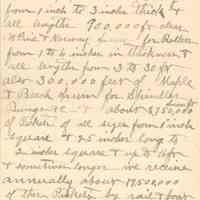 from 1 inch to 3 inches thick &
all lengths 900,000 ft clear
White & Norway for Rollers
from 1 to 6 inches in thickness &
all lengths from 3 to 30 ft
also 300,000 feet of Maple
& Beech for
Rungs &c & about $750,000 feet
of Pickets of all sizes from 1 inch
square & 25 inches long to
2 inches square & up to 4 ft
& sometimes longer we receive
annually about 17,500,000
of these Pickets by rail & boat